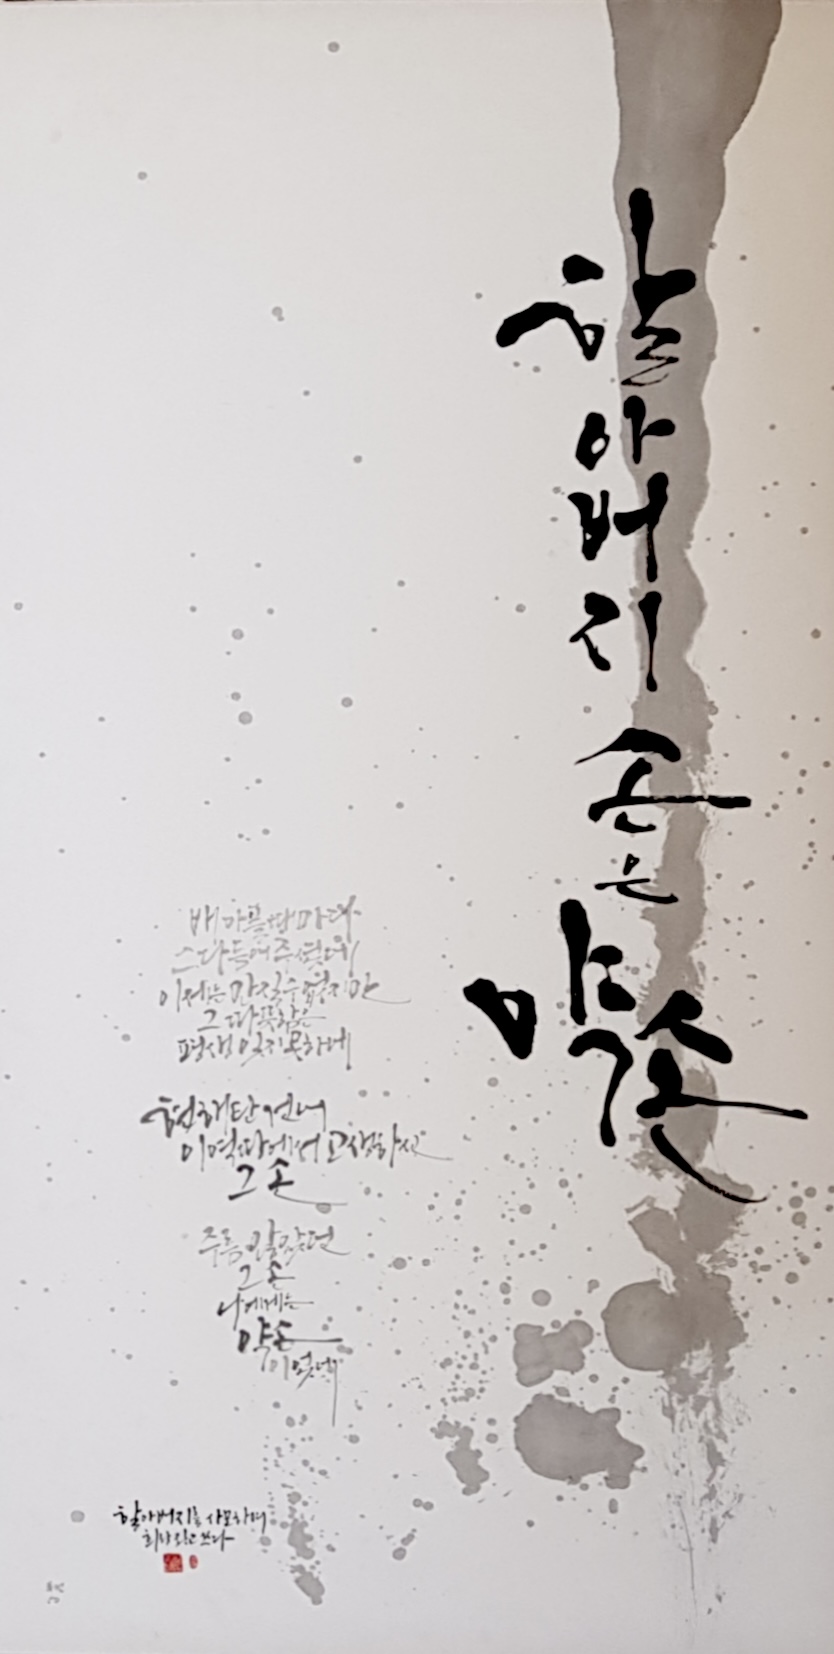 할아버지 손은 약손
배아플땐마다
스다듬어주셨네
이제는 만질수없지만
그 따뜻함은
평생 잊지못하네
현해탄 건너
이역땅에서 고생하신
그 손
주름 많았던
그 손
나에게는
약손
이었네
할아버지를 사모하며
쓰다